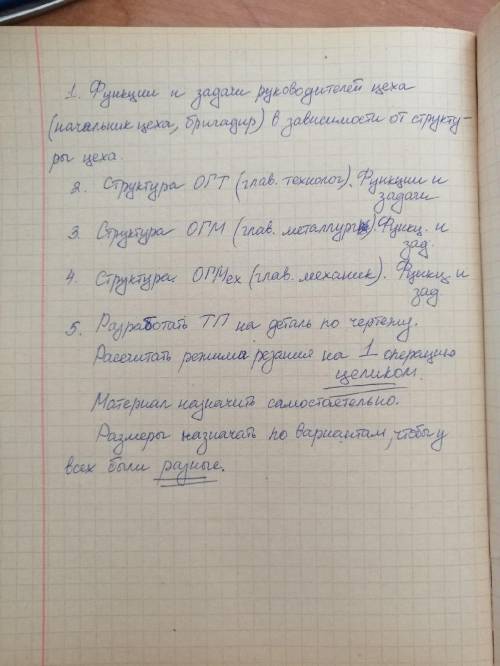 1. Функции и задачи руководителей цеха
(начальник цеха, бригадир) в зависимости от структу-
ры цеха.
2. Структура ОГТ (глав. технолог). Функции и
задачи
3. Структура ОГМ (глав. металлург). Функц. и
зад.
4. Структура ОГМех (глав. механик). Функц. и
зад
5. Разработать ТП на деталь по чертежу.
Рассчитать режима резания на 1 операцию
целиком.
Материал назначить самостоятельно.
Размеры назначать по вариантам, чтобы у
всех были разные.